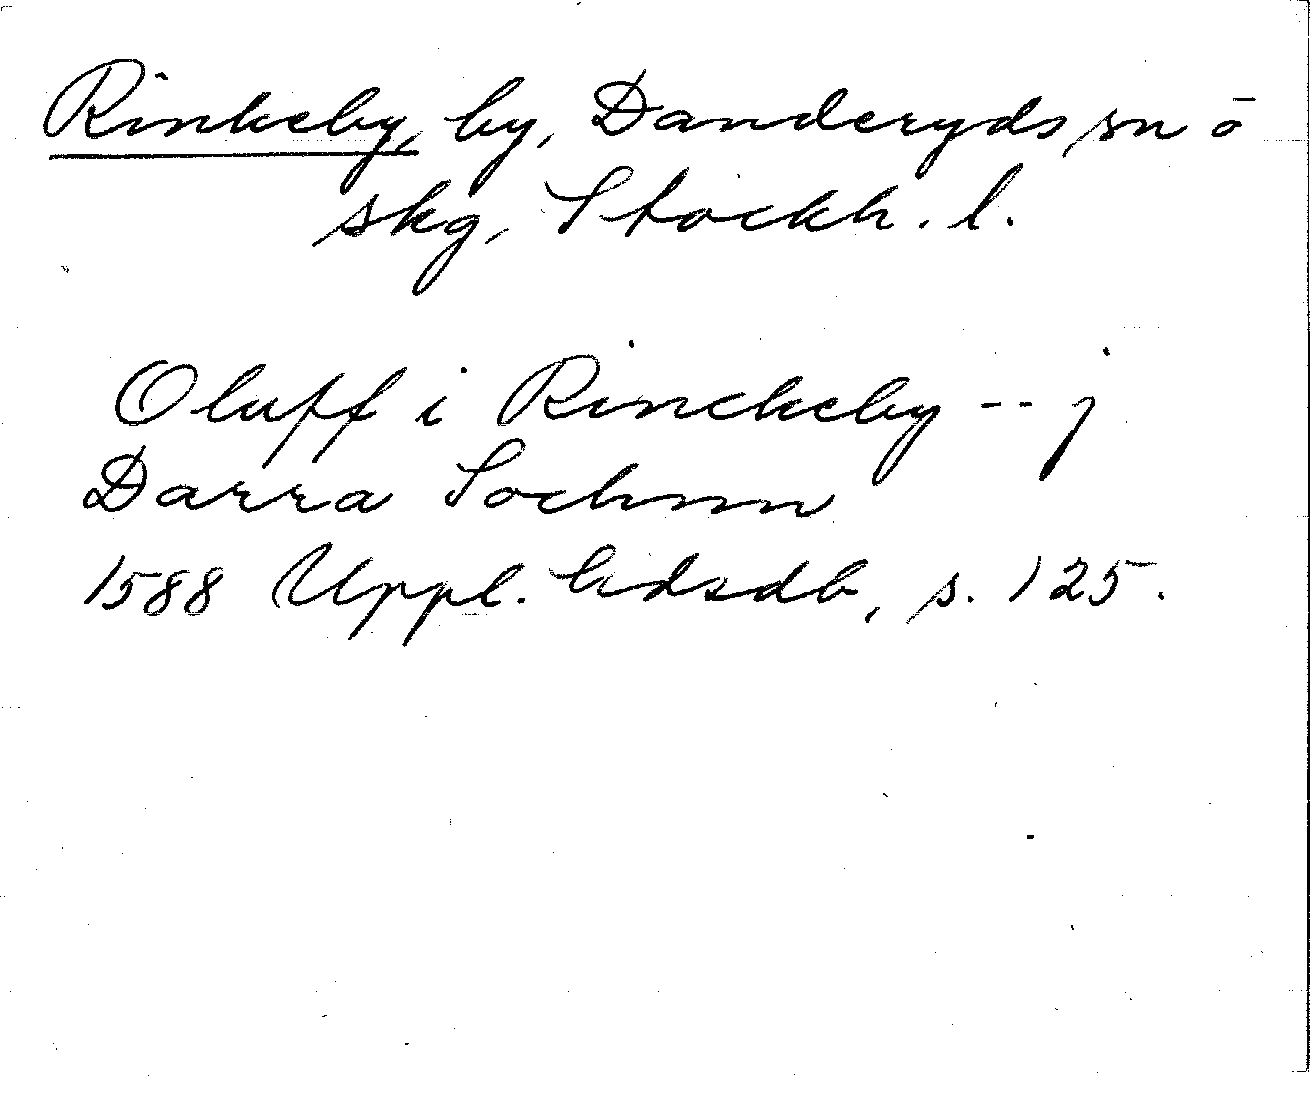 Rinkeby, by, Danderyds sn o
skg, Stockh. l.
Oluff i Rinckeby -- j
Darra Sochnn
1588 Uppl. lidsdb, s. 125.